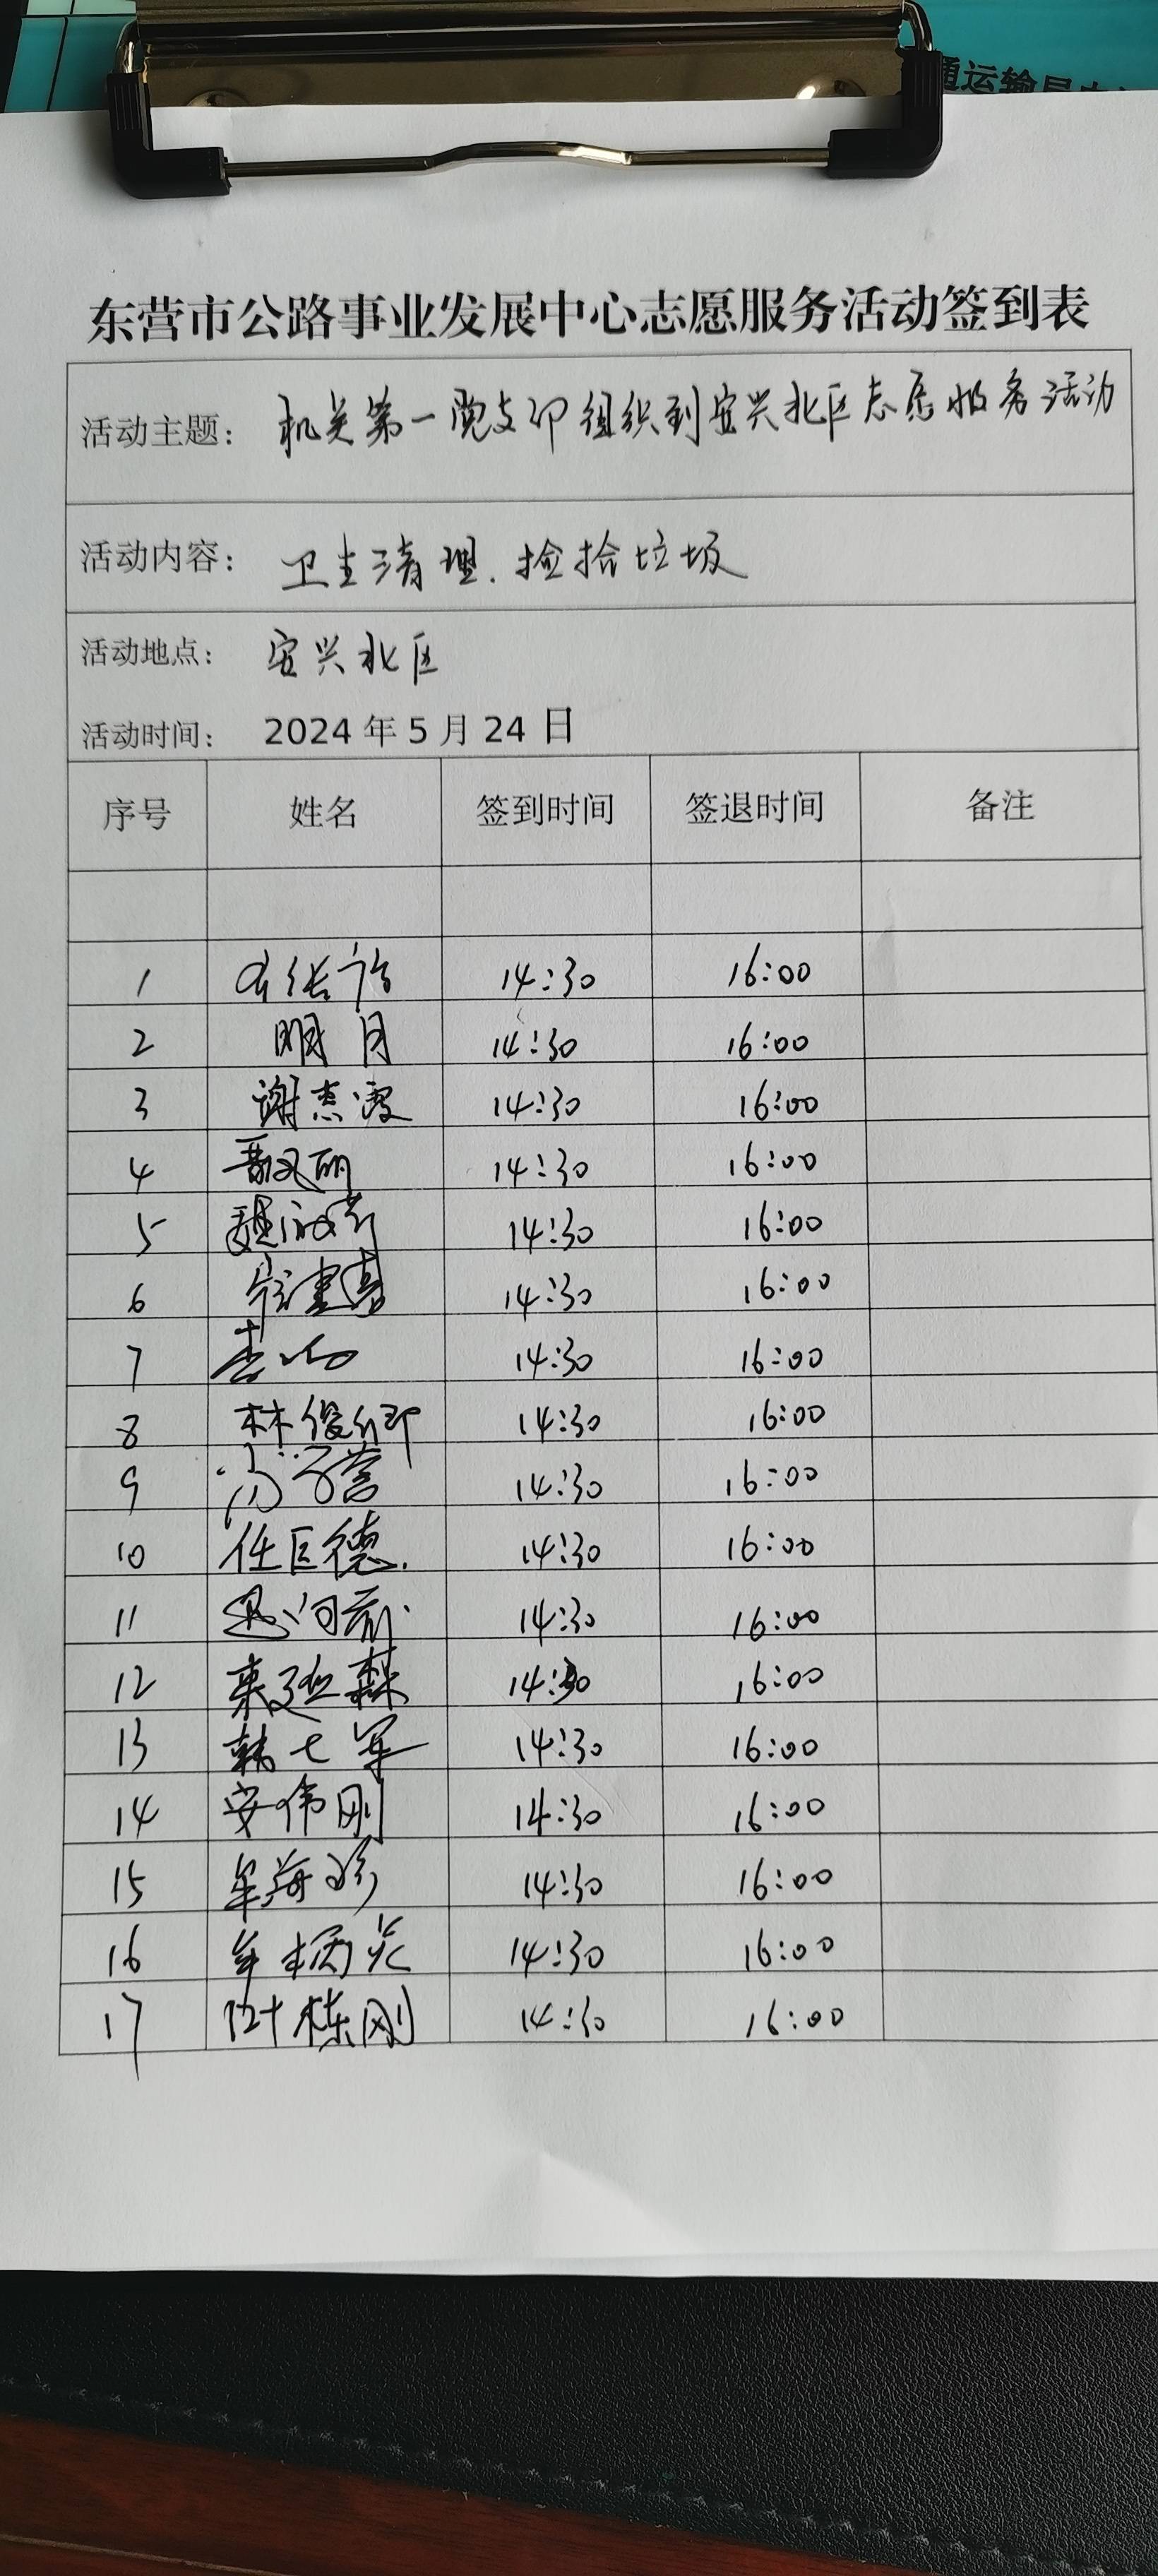 通运输局
东营市公路事业发展中心志愿服务活动签到表
活动主题： 机关第一党支部组织到安兴北区志愿服务活动
活动内容： 卫生清理.捡拾垃圾
活动地点： 安兴北区
活动时间： 2024 年 5 月 24 日
序号 姓名 签到时间 签退时间 备注
1 14:30 16:00
2 明月 14:30 16:00
3 谢 14:30 16:00
4 14:30 16:00
5 14:30 16:00
6 14:30 16:00
7 14:30 16:00
8 林俊卿 14:30 16:00
9 14:30 16:00
10 任巨德 14:30 16:00
11 14:30 16:00
12 14:30 16:00
13 韩七军 14:30 16:00
14 安伟刚 14:30 16:00
15 牟海珍 14:30 16:00
16 14:30 16:00
17 栋刚 14:30 16:00